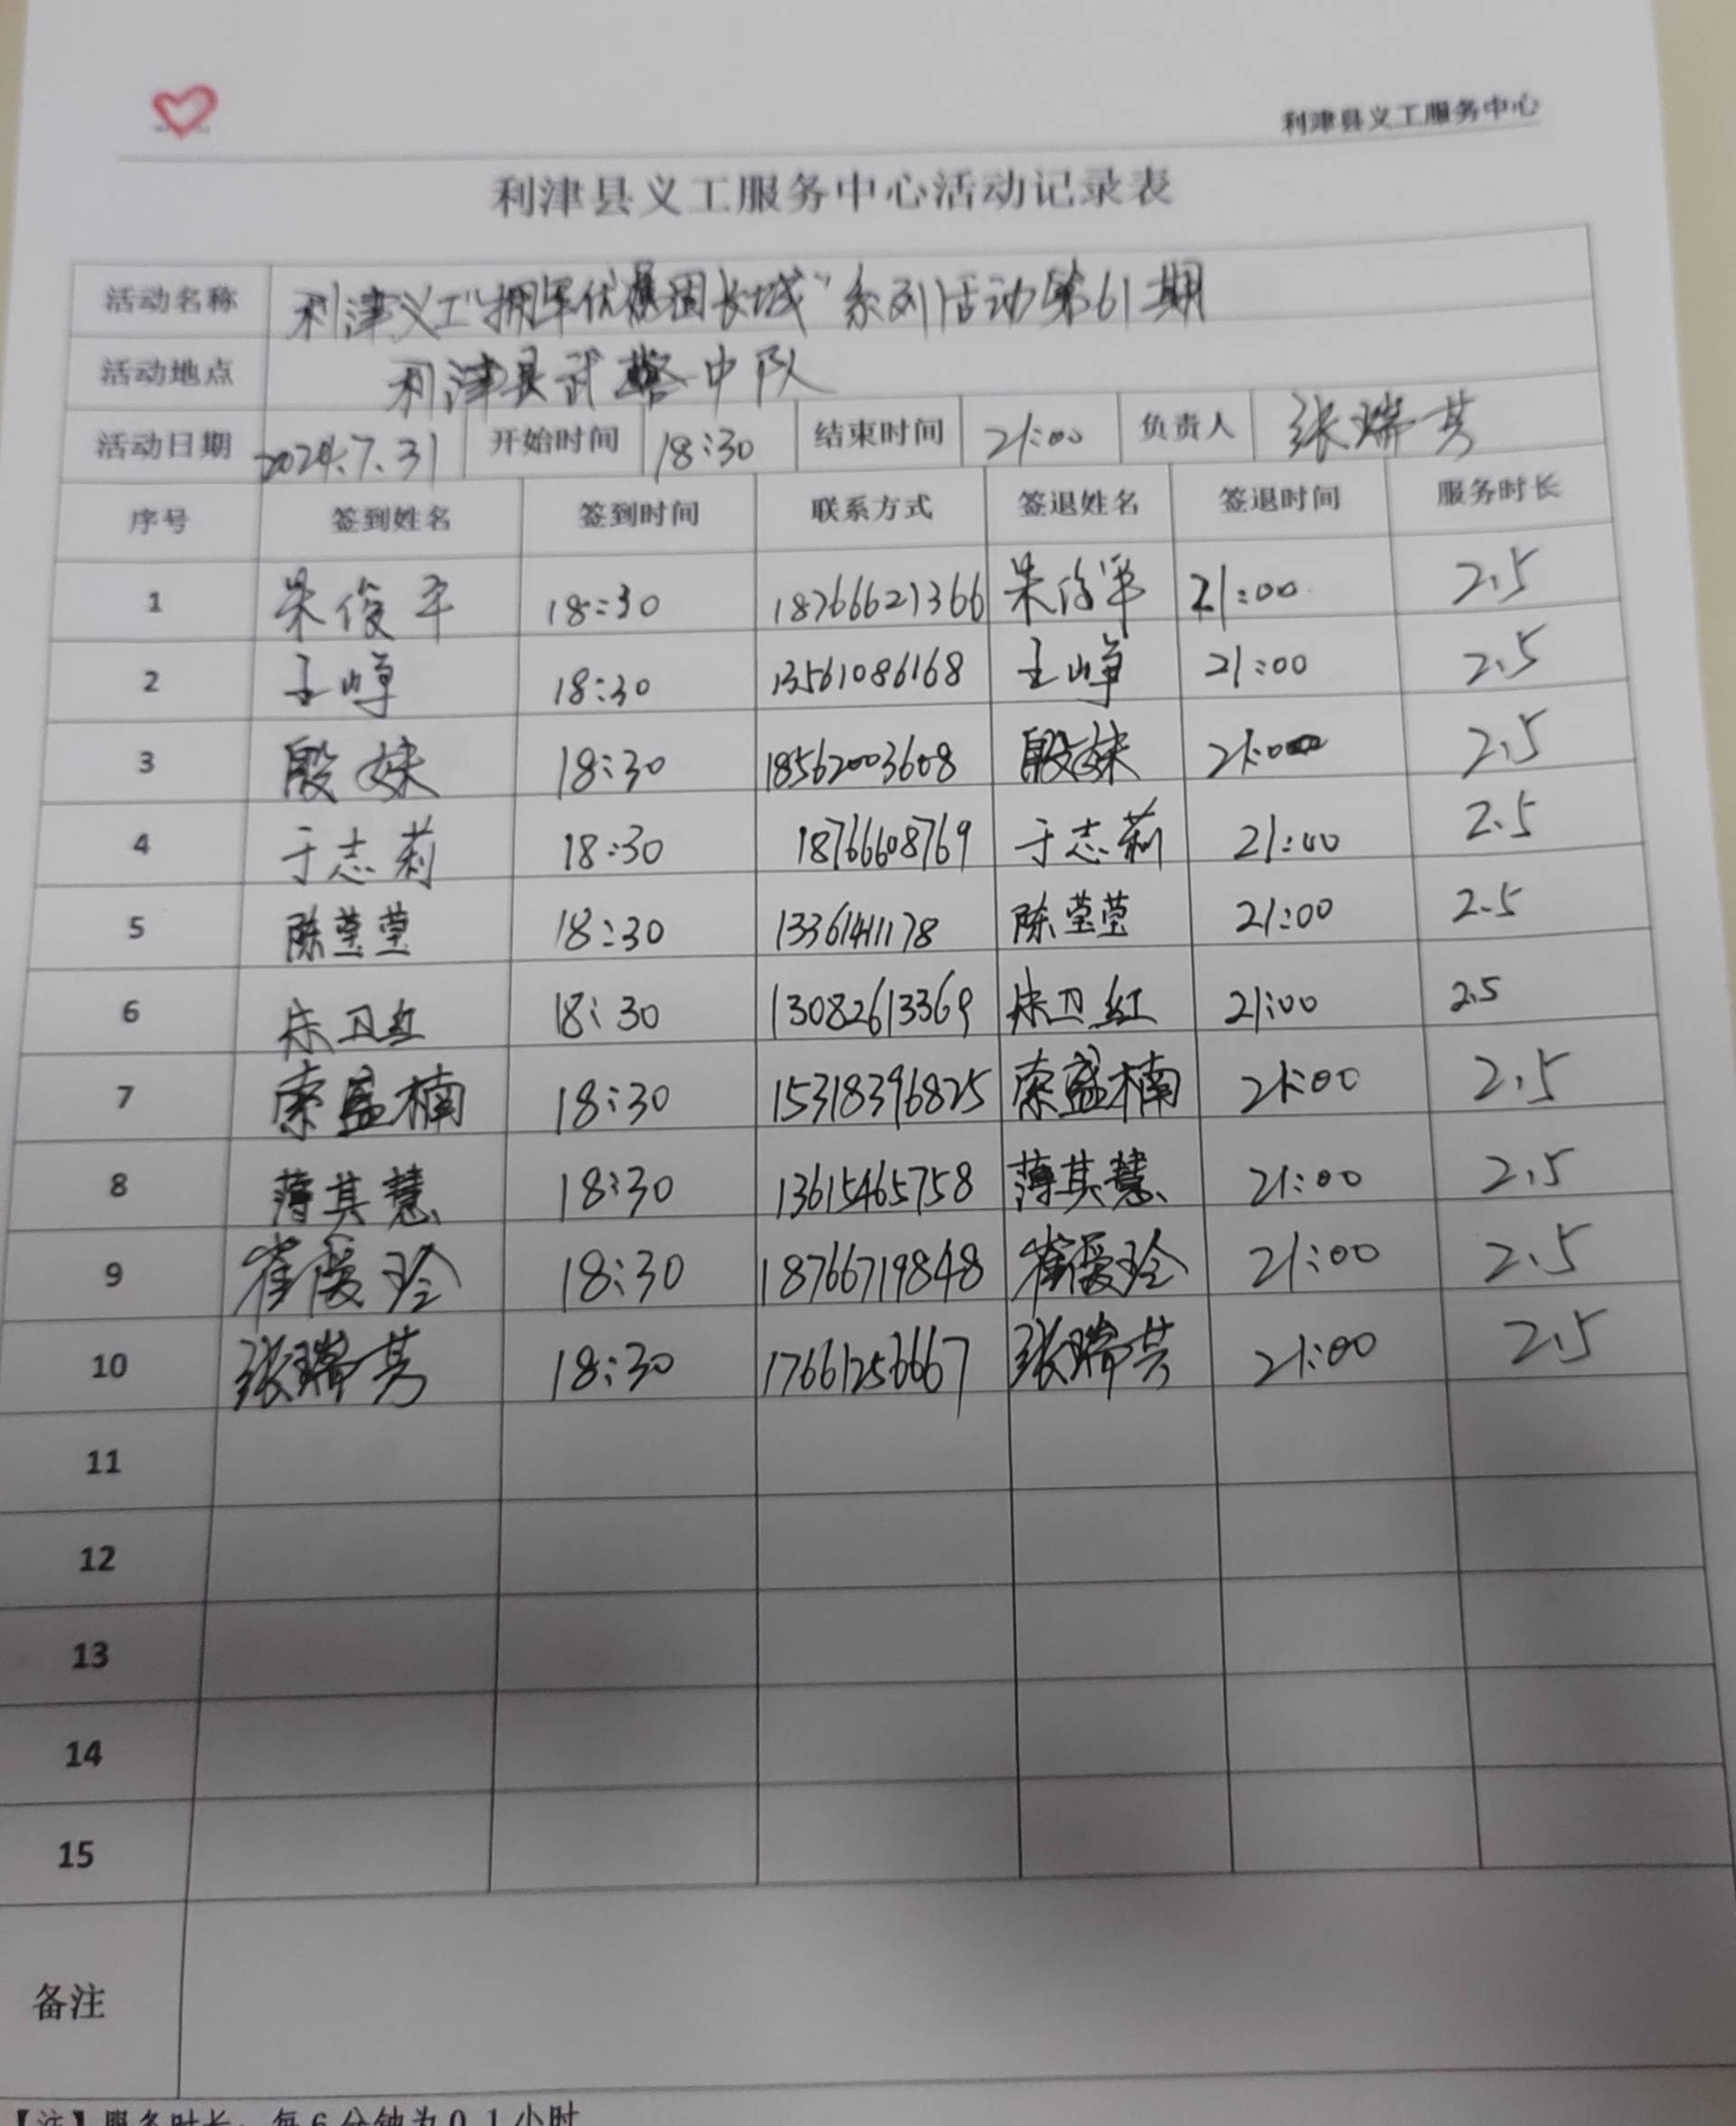 利津县义工服务中心
利津县义工服务中心活动记录表
活动名称 利津义工"拥军优属固长城"系列活动第61期
活动地点 利津县武警中队
活动日期 2024.7.31 开始时间 18:30 结束时间 21:00 负责人 张瑞芳
序号 签到姓名 签到时间 联系方式 签退姓名 签退时间 服务时长
1 朱俊平 18:30 18766621366 朱俊平 21:00 2.5
2 王峥 18:30 13561086168 王峥 21:00 2.5
3 殷姝 18:30 18562003608 殷姝 21:00 2.5
4 于志莉 18:30 18766608769 于志莉 21:00 2.5
5 陈莹莹 18:30 13361411178 陈莹莹 21:00 2.5
6 宋卫红 18:30 13082613369 宋卫红 21:00 2.5
7 索盛楠 18:30 15318396825 索盛楠 21:00 2.5
8 薄其慧 18:30 13615465758 薄其慧 21:00 2.5
9 崔爱玲 18:30 18766719848 崔爱玲 21:00 2.5
10 张瑞芳 18:30 17661256667 张瑞芳 21:00 2.5
11
12
13
14
15
备注
【注】服务时长：每6分钟为0.1小时